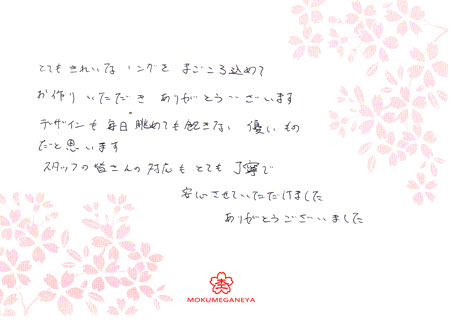 とてもきれいな リングを まごころ込めて
お作り いただき ありがとうございます
デザインも 毎日 眺めても飽きない 優しいもの
だと思います
スタッフの皆さんの対応も とても 丁寧で
安心させていただけました
ありがとうございました
MOKUMEGANEYA